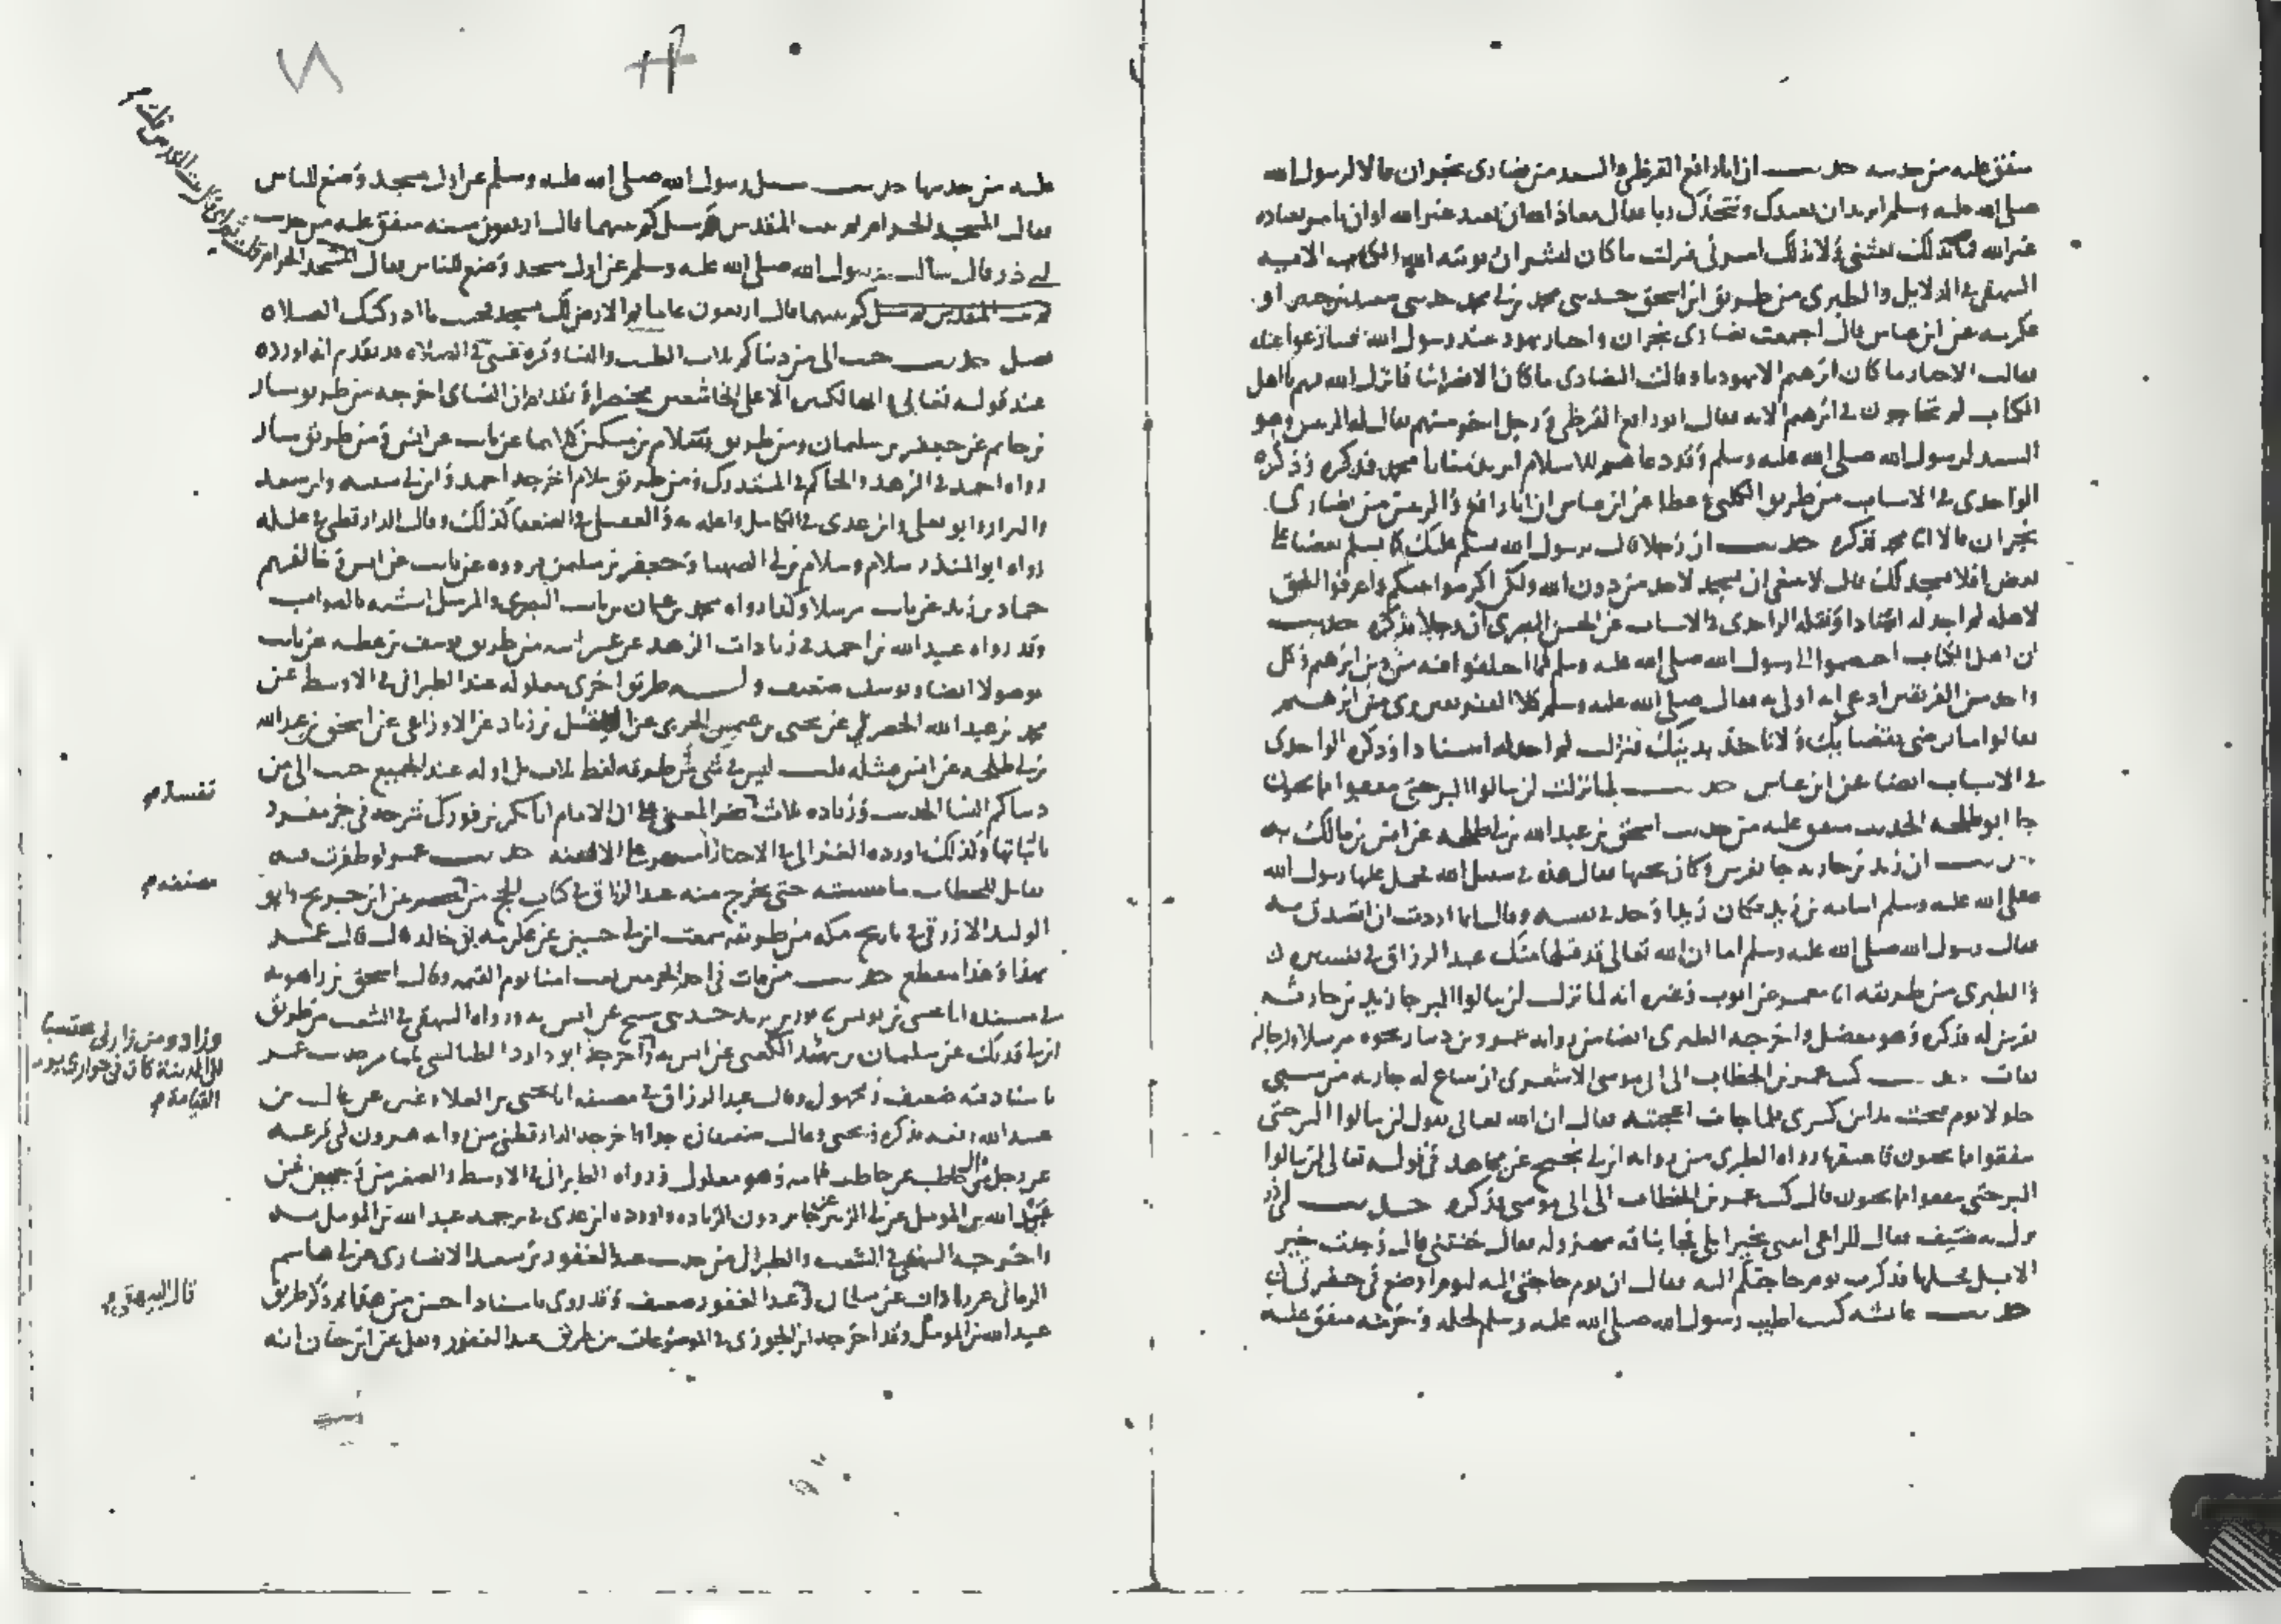 متفق عليه من حديثه حديث ان ابا رافع القرظي والسيد من نصارى نجران قالا لرسول الله
صلى الله عليه وسلم اتريد ان نعبدك ونتخذك ربا فقال معاذ الله ان نعبد غير الله او ان نامر بعباده
غير الله فما بذلك بعثني ولا بذلك امرني فنزلت ما كان لبشر ان يوتيه الله الكتاب الايه
البيهقي في الدلايل والطبري من طريق ابن اسحق حدثني محمد بن ابي محمد حدثني سعيد بن جبير او
عكرمه عن ابن عباس قال اجتمعت نصارى نجران واحبار يهود عند رسول الله فتنازعوا عنده
فقالت الاحبار ما كان ابرهيم الا يهوديا وقالت النصارى ما كان الا نصرانيا فانزل الله فيهم يا اهل
الكتاب لم تحاجون في ابرهيم الايه فقال ابو رافع القرظي ورجل اخر منهم يقال له الريس وهو
السيد لرسول الله صلى الله عليه وسلم وقد دعاهم للاسلام اتريد منا يا محمد فذكره وذكره
الواحدي في الاسباب من طريق الكلبي وعطا عن ابن عباس ان ابا رافع والريس من نصارى
نجران قالا يا محمد فذكره حديث ان رجلا قال يرسول الله نسلم عليك كما يسلم بعضنا على
بعض افلا نسجد لك قال لا ينبغي ان يسجد لاحد من دون الله ولكن اكرموا نبيكم واعرفوا الحق
لاهله لم اجد له اسنادا ونقله الواحدي في الاسباب عن الحسن البصري ان رجلا فذكره حديث
ان اهل الكتاب اختصموا الى رسول الله صلى الله عليه وسلم فيما اختلفوا فيه من دين ابرهيم وكل
واحد من الفريقين ادعى انه اولى به فقال صلى الله عليه وسلم كلا الفريقين بري من ابرهيم
فقالوا ما نرضى بقضايك ولا ناخذ بدينك فنزلت لم اجد له اسنادا وذكره الواحدي
في الاسباب ايضا عن ابن عباس حديث لما نزلت لن تنالوا البر حتى تنفقوا مما تحبون
جا ابو طلحه الحديث متفق عليه من حديث اسحق بن عبد الله بن ابي طلحه عن انس بن مالك به
حديث ان زيد بن حارثه جا بفرس وكان يحبها فقال هذه في سبيل الله فحمل عليها رسول الله
صلى الله عليه وسلم اسامه بن زيد فكان زيدا وجد في نفسه وقال انما اردت ان اتصدق به
فقال رسول الله صلى الله عليه وسلم اما ان الله تعالى قد قبلها منك عبد الرزاق في تفسيره
والطبري من طريقه انا معمر عن ايوب وغيره انه لما نزلت لن تنالوا البر جا زيد بن حارثه
بفرس له فذكره وهو معضل واخرجه الطبري ايضا من روايه عمرو بن دينار نحوه مرسلا ورجاله
ثقات حديث كتب عمر بن الخطاب الى ابي موسى الاشعري ان يبتاع له جاريه من سبي
جلولا يوم فتحت مداين كسرى فلما جات اعجبته فقال ان الله تعالى يقول لن تنالوا البر حتى
تنفقوا مما تحبون فاعتقها رواه الطبري من روايه ابن ابي نجيح عن مجاهد في قوله تعالى لن تنالوا
البر حتى تنفقوا مما تحبون قال كتب عمر بن الخطاب الى ابي موسى فذكره حديث ابي ذر
نزل به ضيف فقال للراعي ايتني بخير ابلي فجا بناقه مهزوله فقال خنتني قال وجدت خير
الابل فحلها فذكرت يوم حاجتكم اليه فقال ان يوم حاجتي اليه ليوم اوضع في حفرتي
حديث عائشه كنت اطيب رسول الله صلى الله عليه وسلم لحله وحرمه متفق عليه
عليه من حديثها حديث سيل رسول الله صلى الله عليه وسلم عن اول مسجد وضع للناس
فقال المسجد الحرام ثم بيت المقدس وسيل كم بينهما قال اربعون سنه متفق عليه من حديث
ابي ذر قال سالت رسول الله صلى الله عليه وسلم عن اول مسجد وضع للناس فقال المسجد الحرام
ثم بيت المقدس كم بينهما قال اربعون عاما ثم الارض لك مسجد فحيث ما ادركتك الصلاه
فصل حديث حبب الي من دنياكم ثلاث الطيب والنسا وقره عيني في الصلاه قد تقدم انه اورده
عند قوله تعالى وانها لكبيره الا على الخاشعين مختصرا وتقدم ان النساي اخرجه من طريق سيار
بن حاتم عن جعفر بن سلمان ومن طريق سلام بن مسكين كلاهما عن ثابت عن انس ومن طريق سيار
رواه احمد في الزهد والحاكم في المستدرك ومن طريق سلام اخرجه احمد وابن ابي شيبه وابن سعد
والبزار وابو يعلى وابن عدي في الكامل واعله به والعقيلي في الضعفا كذلك وقال الدارقطني في علله
رواه ابو المنذر سلام وسلام بن ابي الصهبا وجعفر بن سلمن يروونه عن ثابت عن انس وخالفهم
حماد بن زيد عن ثابت مرسلا وكذا رواه محمد بن عثمان بن ثابت البصري والمرسل اشبه بالصواب
وقد رواه عبد الله بن احمد في زيادات الزهد عن غير ابيه من طريق يوسف بن عطيه عن ثابت
موصولا ايضا ويوسف ضعيف وله طريق اخرى معلوله عند الطبراني في الاوسط عن
محمد بن عبد الله الحضرمي عن يحيى بن عثمن الحربي عن الهقل بن زياد عن الاوزاعي عن اسحق بن عبد الله
بن ابي طلحه عن انس مثله قلت ليس في شي من طرقه لفظ ثلاث بل اوله عند الجميع حبب الي من
دنياكم النسا الحديث وزياده ثلاث تفسد المعنى على ان الامام ابا بكر بن فورك شرحه في جزء مفرد
باثباتها وكذلك اورده الغزالي في الاحيا واشتهر على الالسنه حديث عمر لو ظفرت فيه
بقاتل الخطاب ما مسسته حتى يخرج منه عبد الرزاق في كتاب الحج من مصنفه عن ابن جريج وابو
الوليد الازرقي في تاريخ مكه من طريقه سمعت ابن ابي حسين عن عكرمه بن خالد قال قال عمر
بهذا وهذا منقطع حديث من مات في احد الحرمين بعث امنا يوم القيمه وقال اسحق بن راهويه
في مسنده انا عيسى بن يونس ثنا ثور بن يزيد حدثني شيخ عن انس به ورواه البيهقي في الشعب من طريق
ابن ابي فديك عن سلمان بن يزيد الكعبي عن انس به واخرجه ابو داود الطيالسي من حديث عمر
باسناد فيه ضعيف ومجهول وقال عبد الرزاق في مصنفه انا يحيى بن العلا وغيره عن غالب بن
عبيد الله رفعه فذكره ويحيى وغالب ضعيفان جدا واخرجه الدارقطني من روايه هرون ابي قزعه
عن رجل من ال حاطب عن حاطب بتمامه وهو معلول ورواه الطبراني في الاوسط والصغير من
عبد الله بن المومل عن ابي الزبير عن جابر دون الزياده واورده ابن عدي في ترجمه عبد الله بن المومل به
واخرجه البيهقي في الشعب والطبراني من حديث عبد الغفور بن سعيد الانصاري عن ابي هاشم
الرماني عن زاذان عن سلمان وعبد الغفور ضعيف وقد روي باسناد احسن من هذا ثم ذكر طريق
عبد الله بن المومل وقد اخرجه ابن الجوزي في الموضوعات من طريق عبد الغفور ونقل عن ابن حبان انه
تفسد م
مصنفه م
وزاد ومن زارني محتسبا
الى المدينة كان في جواري يوم
القيامة م
قال البيهقي م